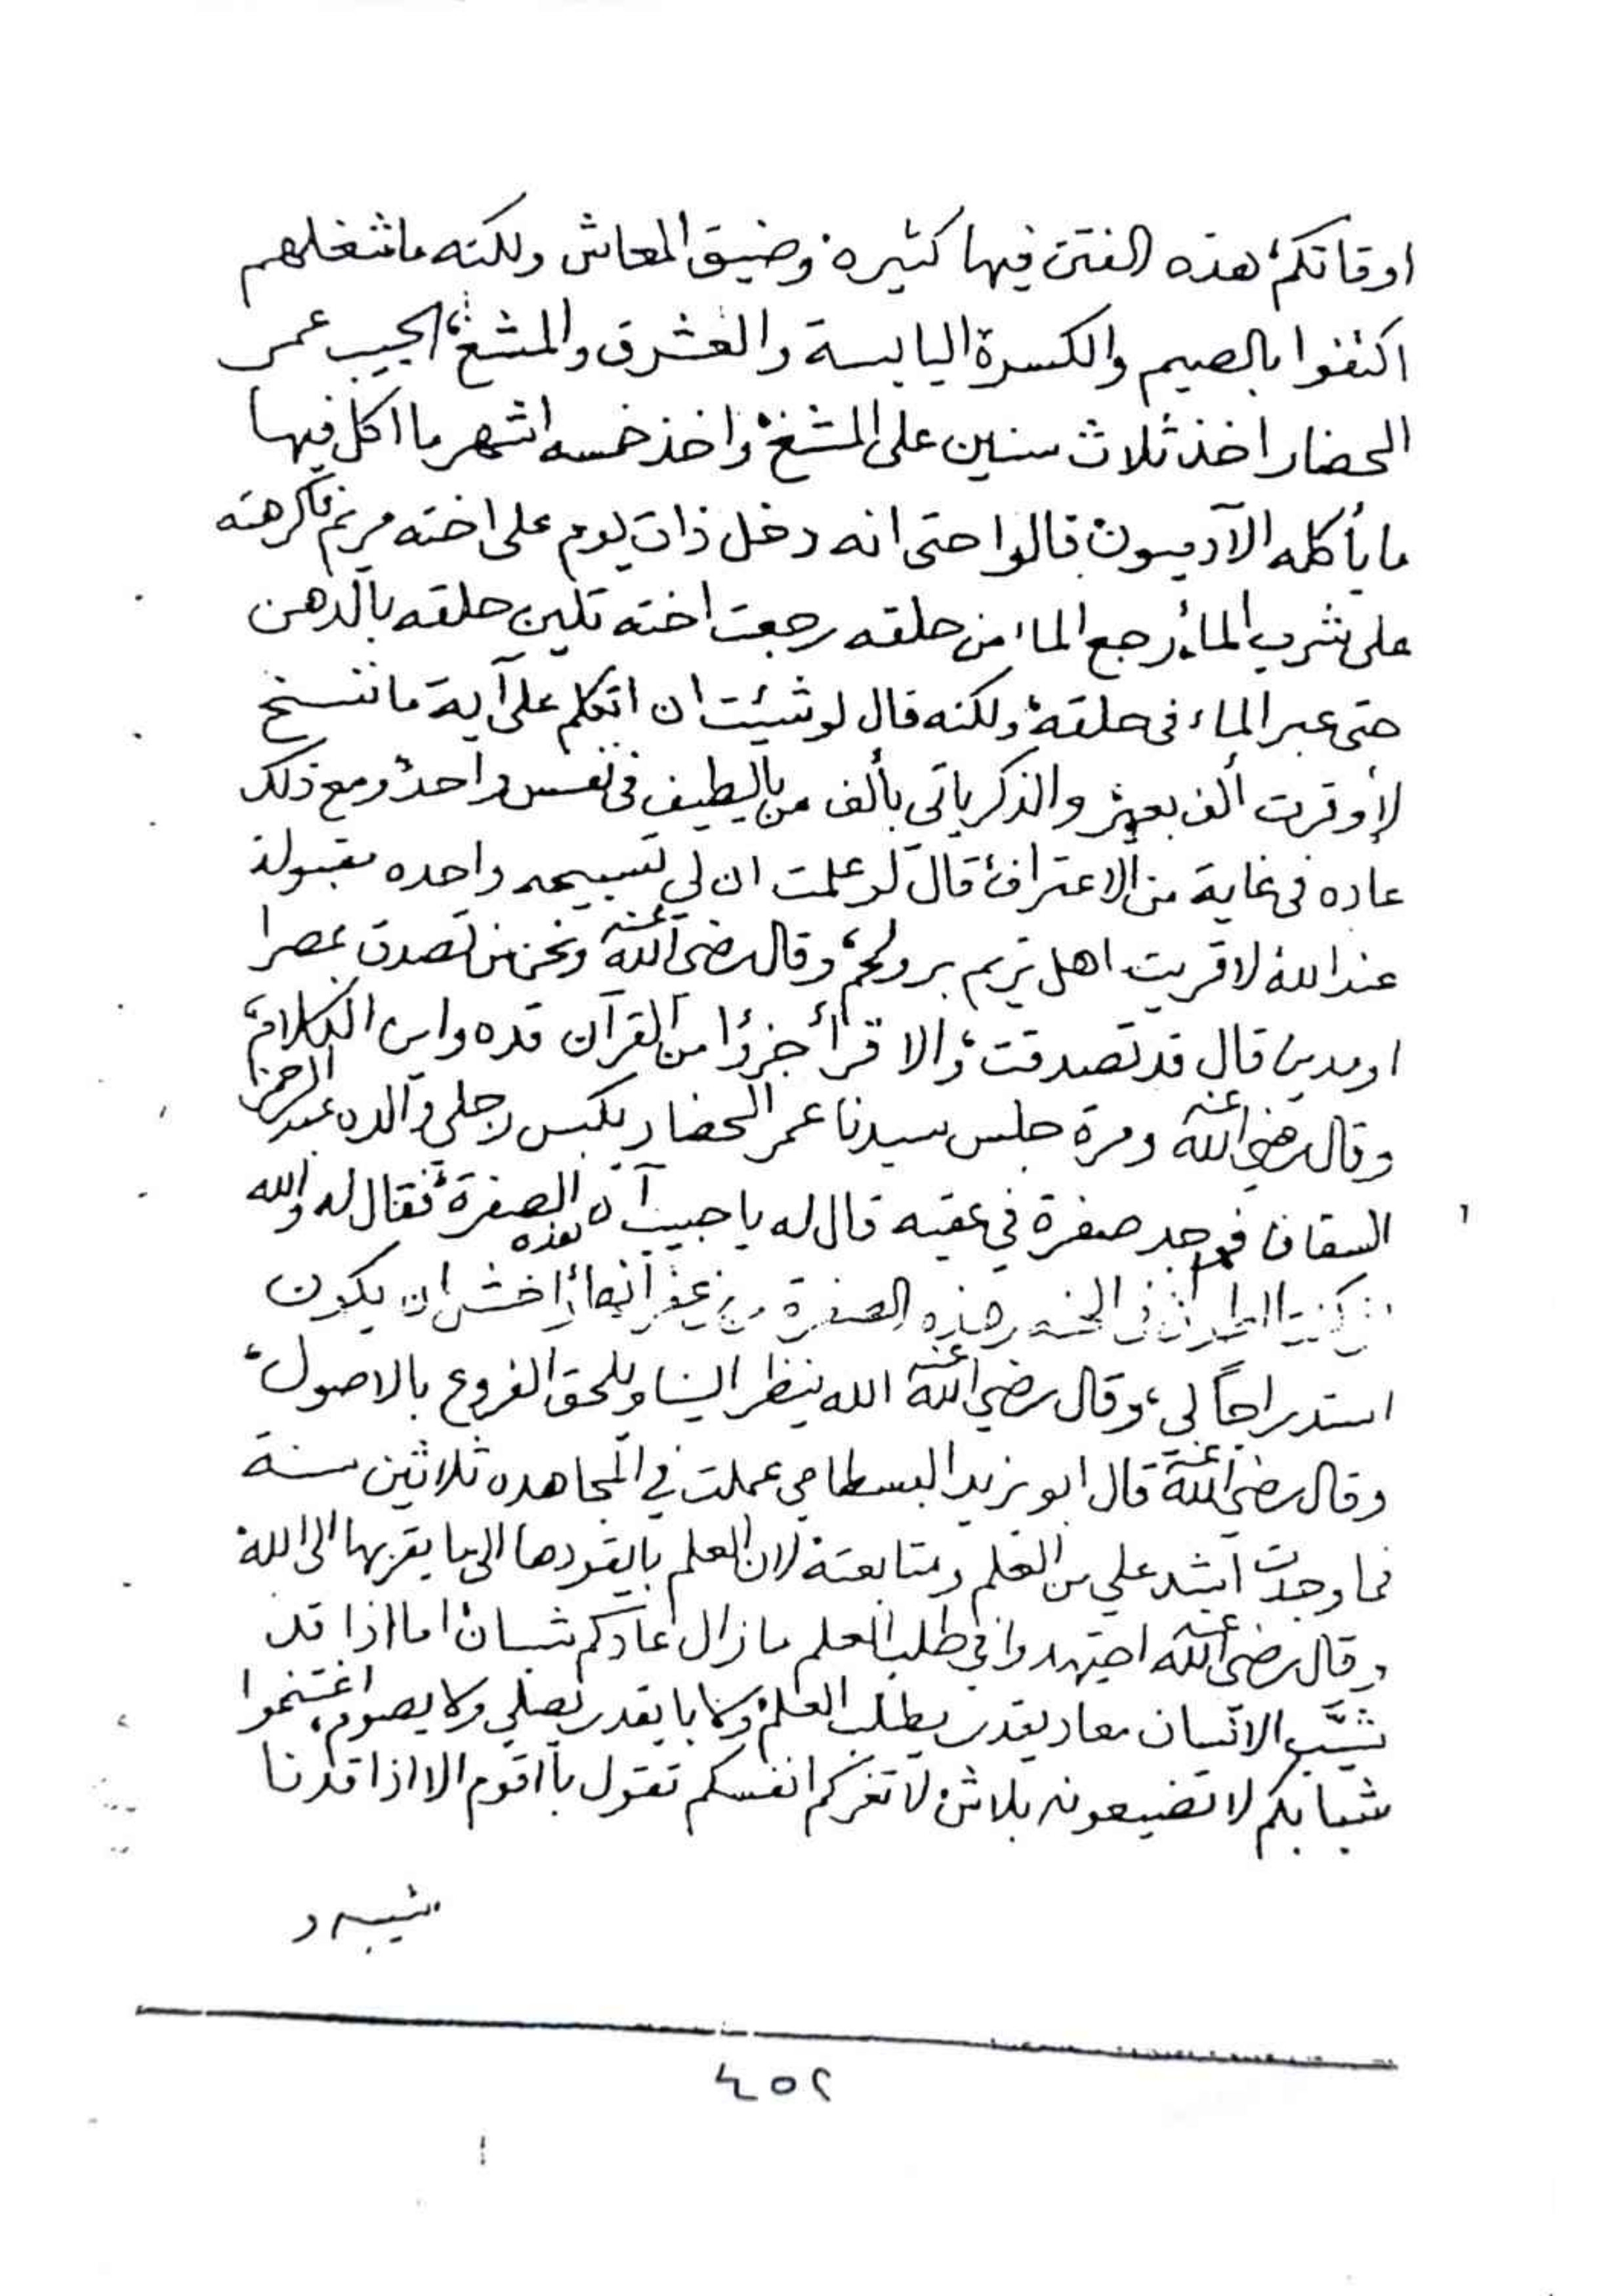 اوقاتكم، هذه الفتن فيها كثيره، وضيق المعاش ولكنه ماشغلهم
اكتفوا بالصيم والكسرة اليابسة والعشرق والمشغ، الحبيب عمر
الحضار اخذ ثلاث سنين على المشغ، واخذ خمسه اشهر ما اكل فيها
مايأكله الآدميون، قالوا حتى انه دخل ذات يوم على اخته مريم فاكرهته
على شرب الماء، رجع الماء من حلقه رجعت اخته تلين حلقه بالدهن
حتى عبر الماء في حلقه، ولكنه قال لو شئيت ان اتكلم على آية ماننسخ
لأوقرت ألف بعير، والذكر ياتي بألف من يالطيف في نفس واحد، ومع ذلك
عاده في غاية من الاعتراف، قال لو علمت ان لي تسبيحه واحده مقبولة
عند الله لاقريت اهل تريم بر ولحم، وقال رضي الله عنه ونحن من تصدق بمصرا
اومدين قال قد تصدقت، والا قرأ جزؤا من القرآن قده وابن الكلام،
وقال رضي الله عنه ومرة جلس سيدنا عمر الحضار يكبس رجلي والده عبدالرحمن
السقاف فوجد صفرة في عقبه قال له ياحبيب آه هذه الصفرة، فقال له والله
كنت الطوف في الجنه وهذه الصفرة من زعفرانها، واخشى ان يكون
استدراجاً لي، وقال رضي الله عنه الله ينظر الينا ويلحق الفروع بالاصول،
وقال رضي الله عنه قال ابو يزيد البسطامي عملت في المجاهده ثلاثين سنة
فما وجدت اشد علي من العلم ومتابعته، لان العلم بايقودها الى ما يقربها الى الله،
وقال رضي الله عنه اجتهدوا في طلب العلم مازال عادكم شبان، اما اذا قد
شيَّب الانسان معاد يقدر يطلب العلم، ولا با يقدر يصلي ولا يصوم، اغتنموا
شبابكم لاتضيعونه بلاش، لاتغركم انفسكم تقول بأاقوم الا اذا قدنا
شيبه و
٤٥٢